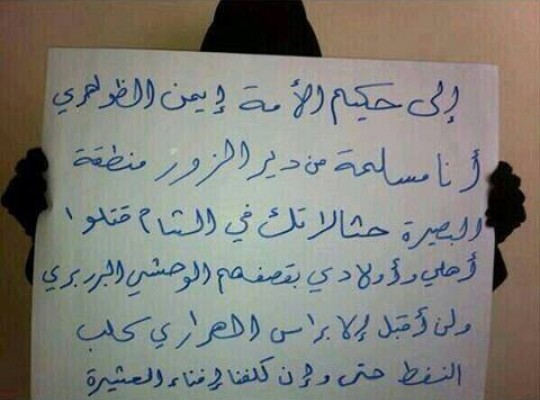 إلى حكيم الأمة إيمن الظواهري
أنا مسلمة من دير الزور منطقة
البصيرة حثالاتك في الشام قتلوا
أهلي وأولادي بقصفهم الوحشي البربري
ولن أقبل إلا براس الهراري كلب
النفط حتى وإن كلفنا إفناء العشيرة